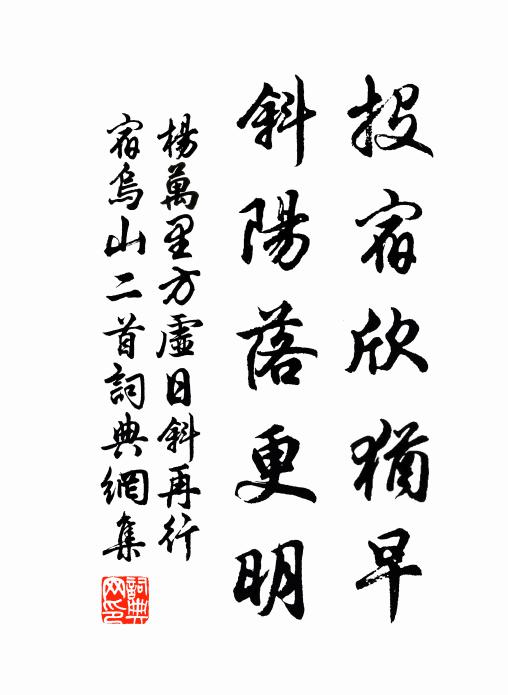 投宿欣猶早
斜陽落更明
楊萬里方虛日斜再行
宿烏山二首詞典網集